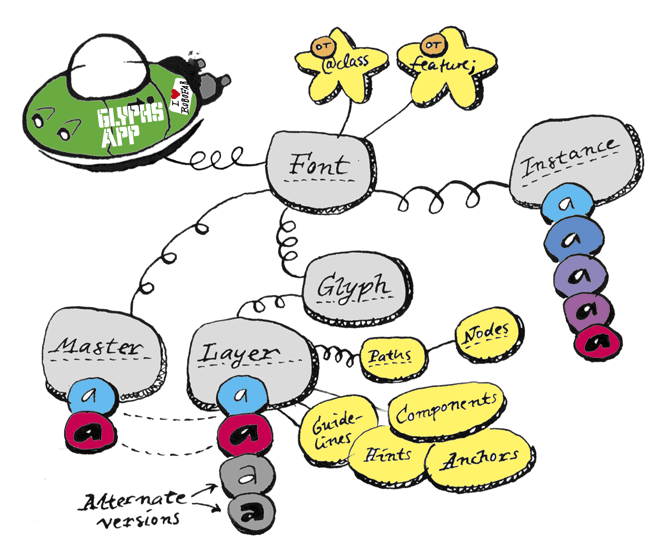 GLYPHS
APP
I
ROBOFAB
OT
@class
OT
feature;
Font
Instance
a
a
a
a
a
Glyph
Master
a
a
Layer
a
a
a
a
Paths
Nodes
Guide-
lines
Components
Hints
Anchors
Alternate
versions